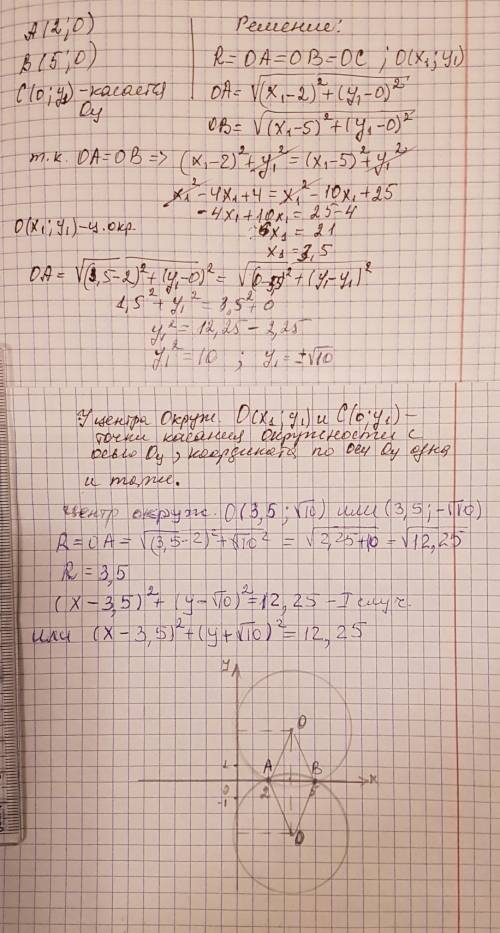 A(2;0)
B(5;0)
C(0;y₁)-касается
Oy
Решение:
R=OA=OB=OC ; O(x₁;y₁)
OA=√((x₁-2)²+(y₁-0)²)
OB=√((x₁-5)²+(y₁-0)²)
т.к. OA=OB => (x₁-2)²+y₁²=(x₁-5)²+y₁²
x₁²-4x₁+4=x₁²-10x₁+25
-4x₁+10x₁=25-4
O(x₁;y₁)-ц.окр.
6x₁=21
x₁=3,5
OA=√((3,5-2)²+(y₁-0)²)=√((0-3,5)²+(y₁-y₁)²)
1,5²+y₁²=3,5²+0
y₁²=12,25-2,25
y₁²=10 ; y₁=±√10
У центра окруж. O(x₁;y₁) и C(0;y₁)-
точки касания окружности с
осью Oy, координата по оси Oy одна
и та же.
Центр окруж. O(3,5;√10) или (3,5;-√10)
R=OA=√((3,5-2)²+√10²)=√(2,25+10)=√12,25
R=3,5
(x-3,5)²+(y-√10)²=12,25-I случ.
или (x-3,5)²+(y+√10)²=12,25
y
O
1
A
B
x
0
2
5
-1
O